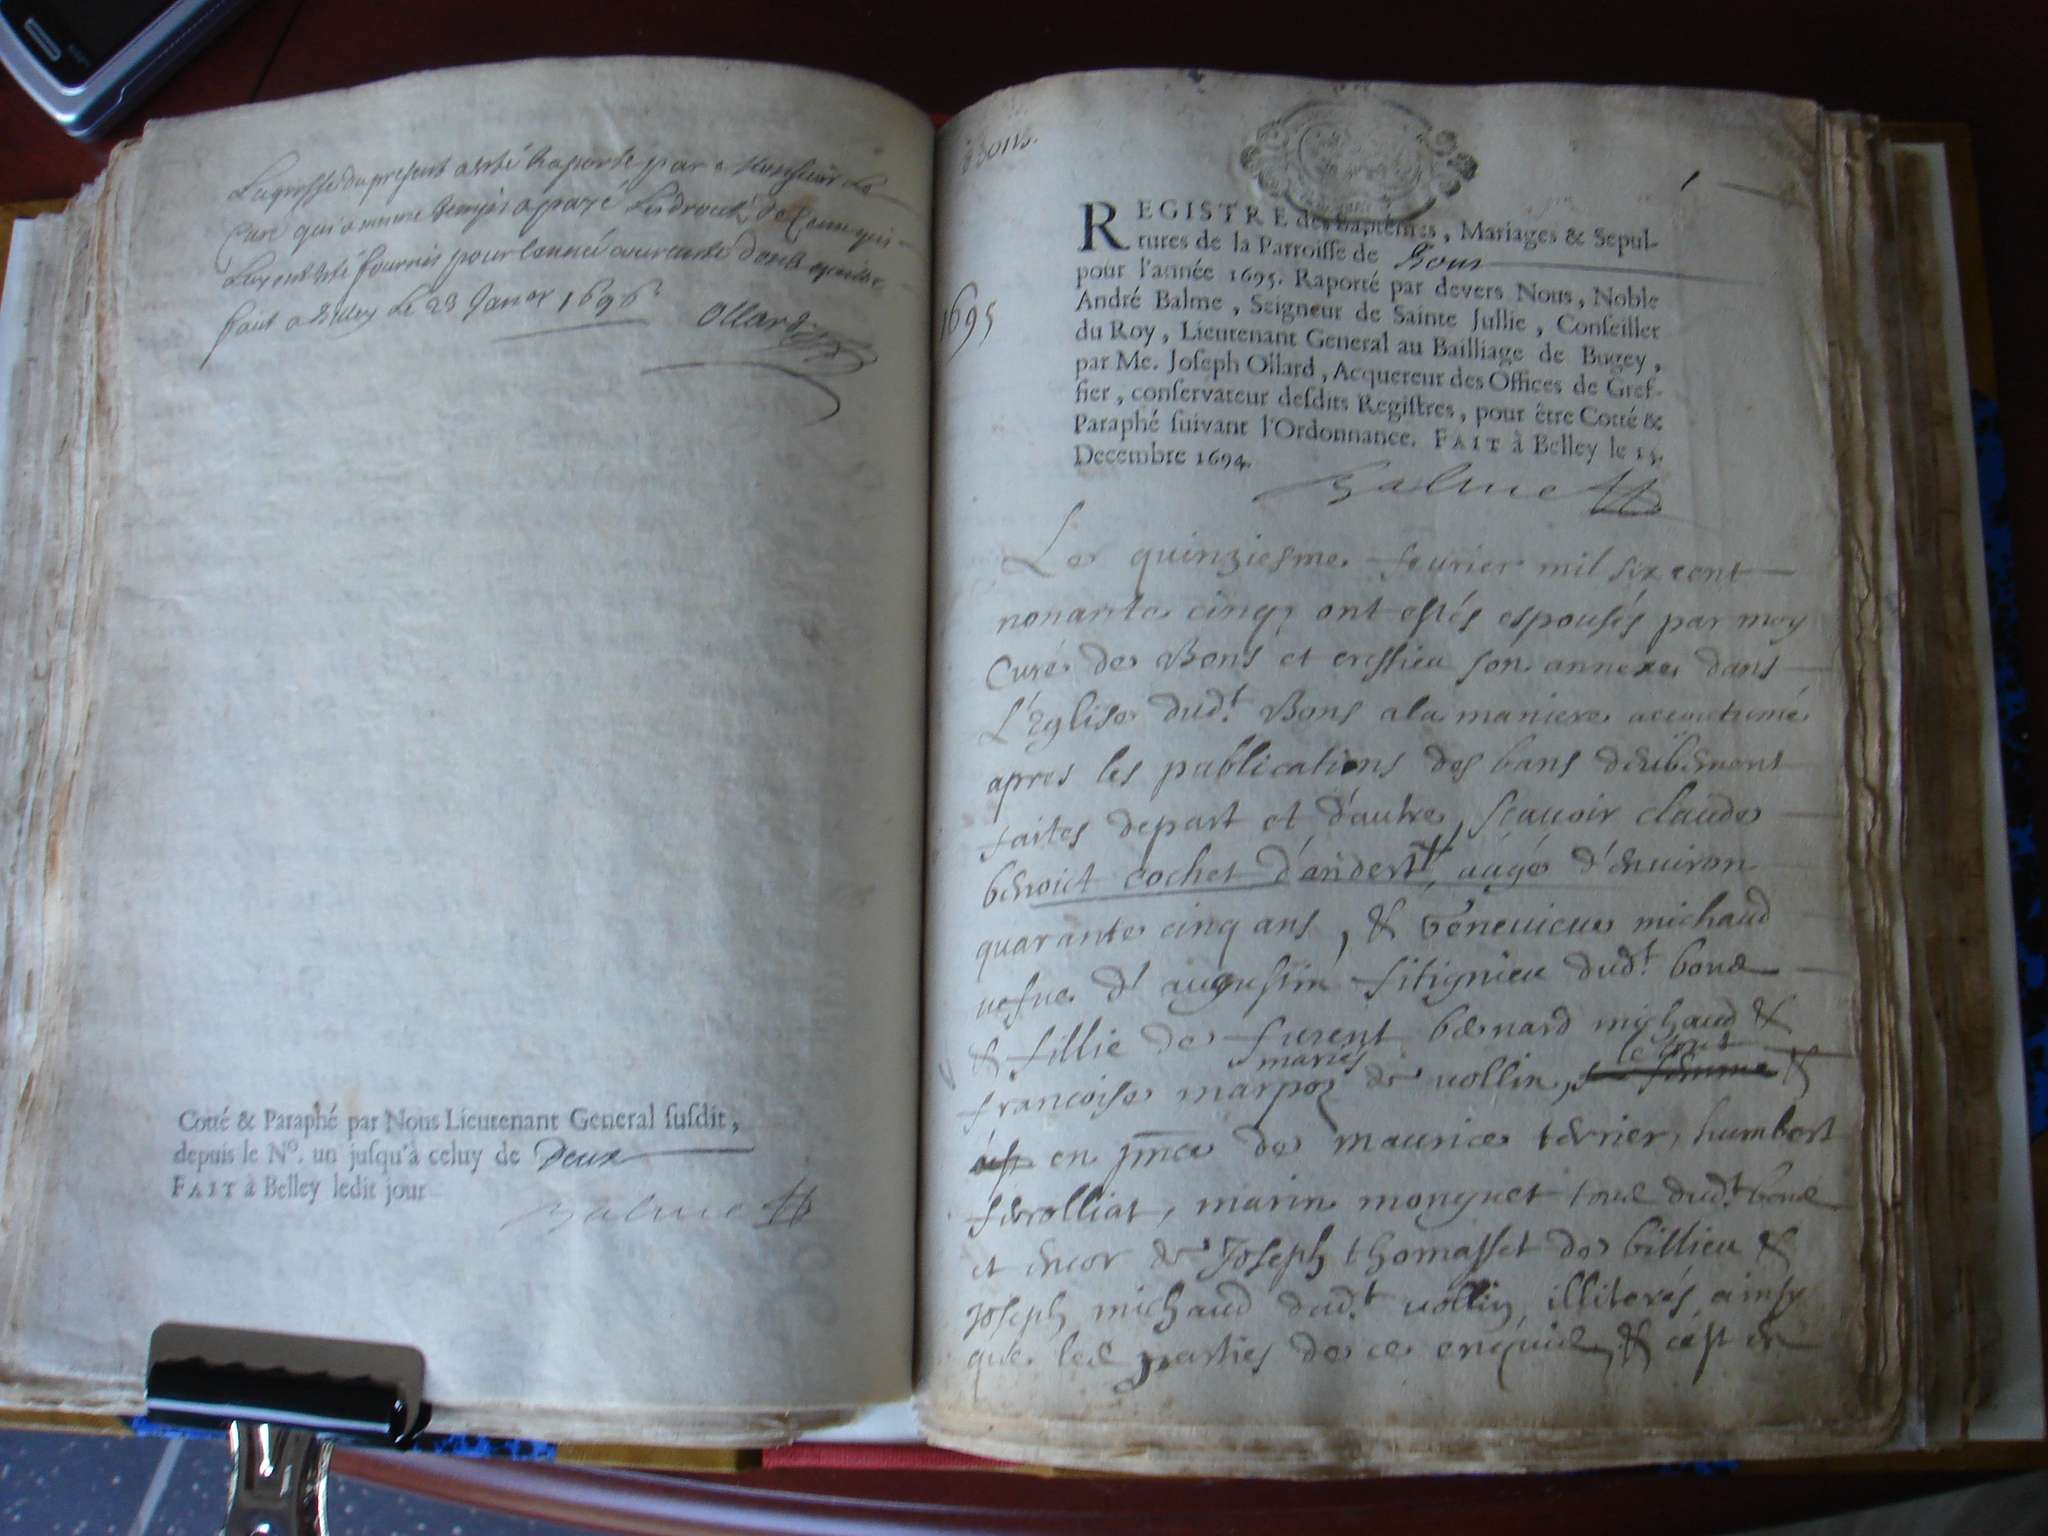 La grosse du present a esté Raporté par Monsieur le
Curé qui a mesme temps a payé les droits de ceux qui
luy ont esté fournis pour l'année courante dont quitte
fait a Belley le 23 Janvr 1696
Ollard
Cotté & Paraphé par Nous Lieutenant General susdit,
depuis le No. un jusqu'à celuy de Deux
FAIT à Belley ledit jour
Balme
1
1695
REGISTRE des Baptêmes, Mariages & Sepul-
tures de la Parroisse de Bons
pour l'année 1695. Raporté par devers Nous, Noble
André Balme, Seigneur de Sainte Jullie, Conseiller
du Roy, Lieutenant General au Bailliage de Bugey,
par Me. Joseph Ollard, Acquereur des Offices de Gref-
fier, conservateur desdits Registres, pour être Cotté &
Paraphé suivant l'Ordonnance. FAIT à Belley le 15.
Decembre 1694.
Balme
Le quinziesme fevrier mil six cent
nonante cinq, ont estés espousés par moy
Curé de Bons et cressieu son annexe dans
L'Eglise dud.t Bons a la maniere accoutumé
apres les publications des bans deubement
faites depart et d'autre, scauoir claude
benoict cochet d'andert, aagé d'enuiron
quarante cinq ans, & Geneuieue michaud
uefue d' augustin fitignieu dud.t bons
& fillie de furent bernard michaud &
francoise marpoz mariés de uollin, le tout &
en pnce de maurice terrier, humbert
ferolliat, marin monguet tous dud.t bons
et encor de Joseph thomasset de billieu &
Joseph michaud dud.t uollin illiterés ainsy
que les parties de ce enquis, & c'est en